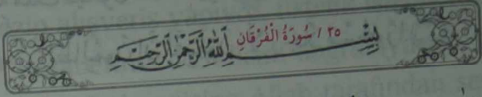 ٢٥ / سُورَةُ الْفُرْقَانِ
بِسْمِ اللّٰهِ الرَّحْمٰنِ الرَّحِيمِ